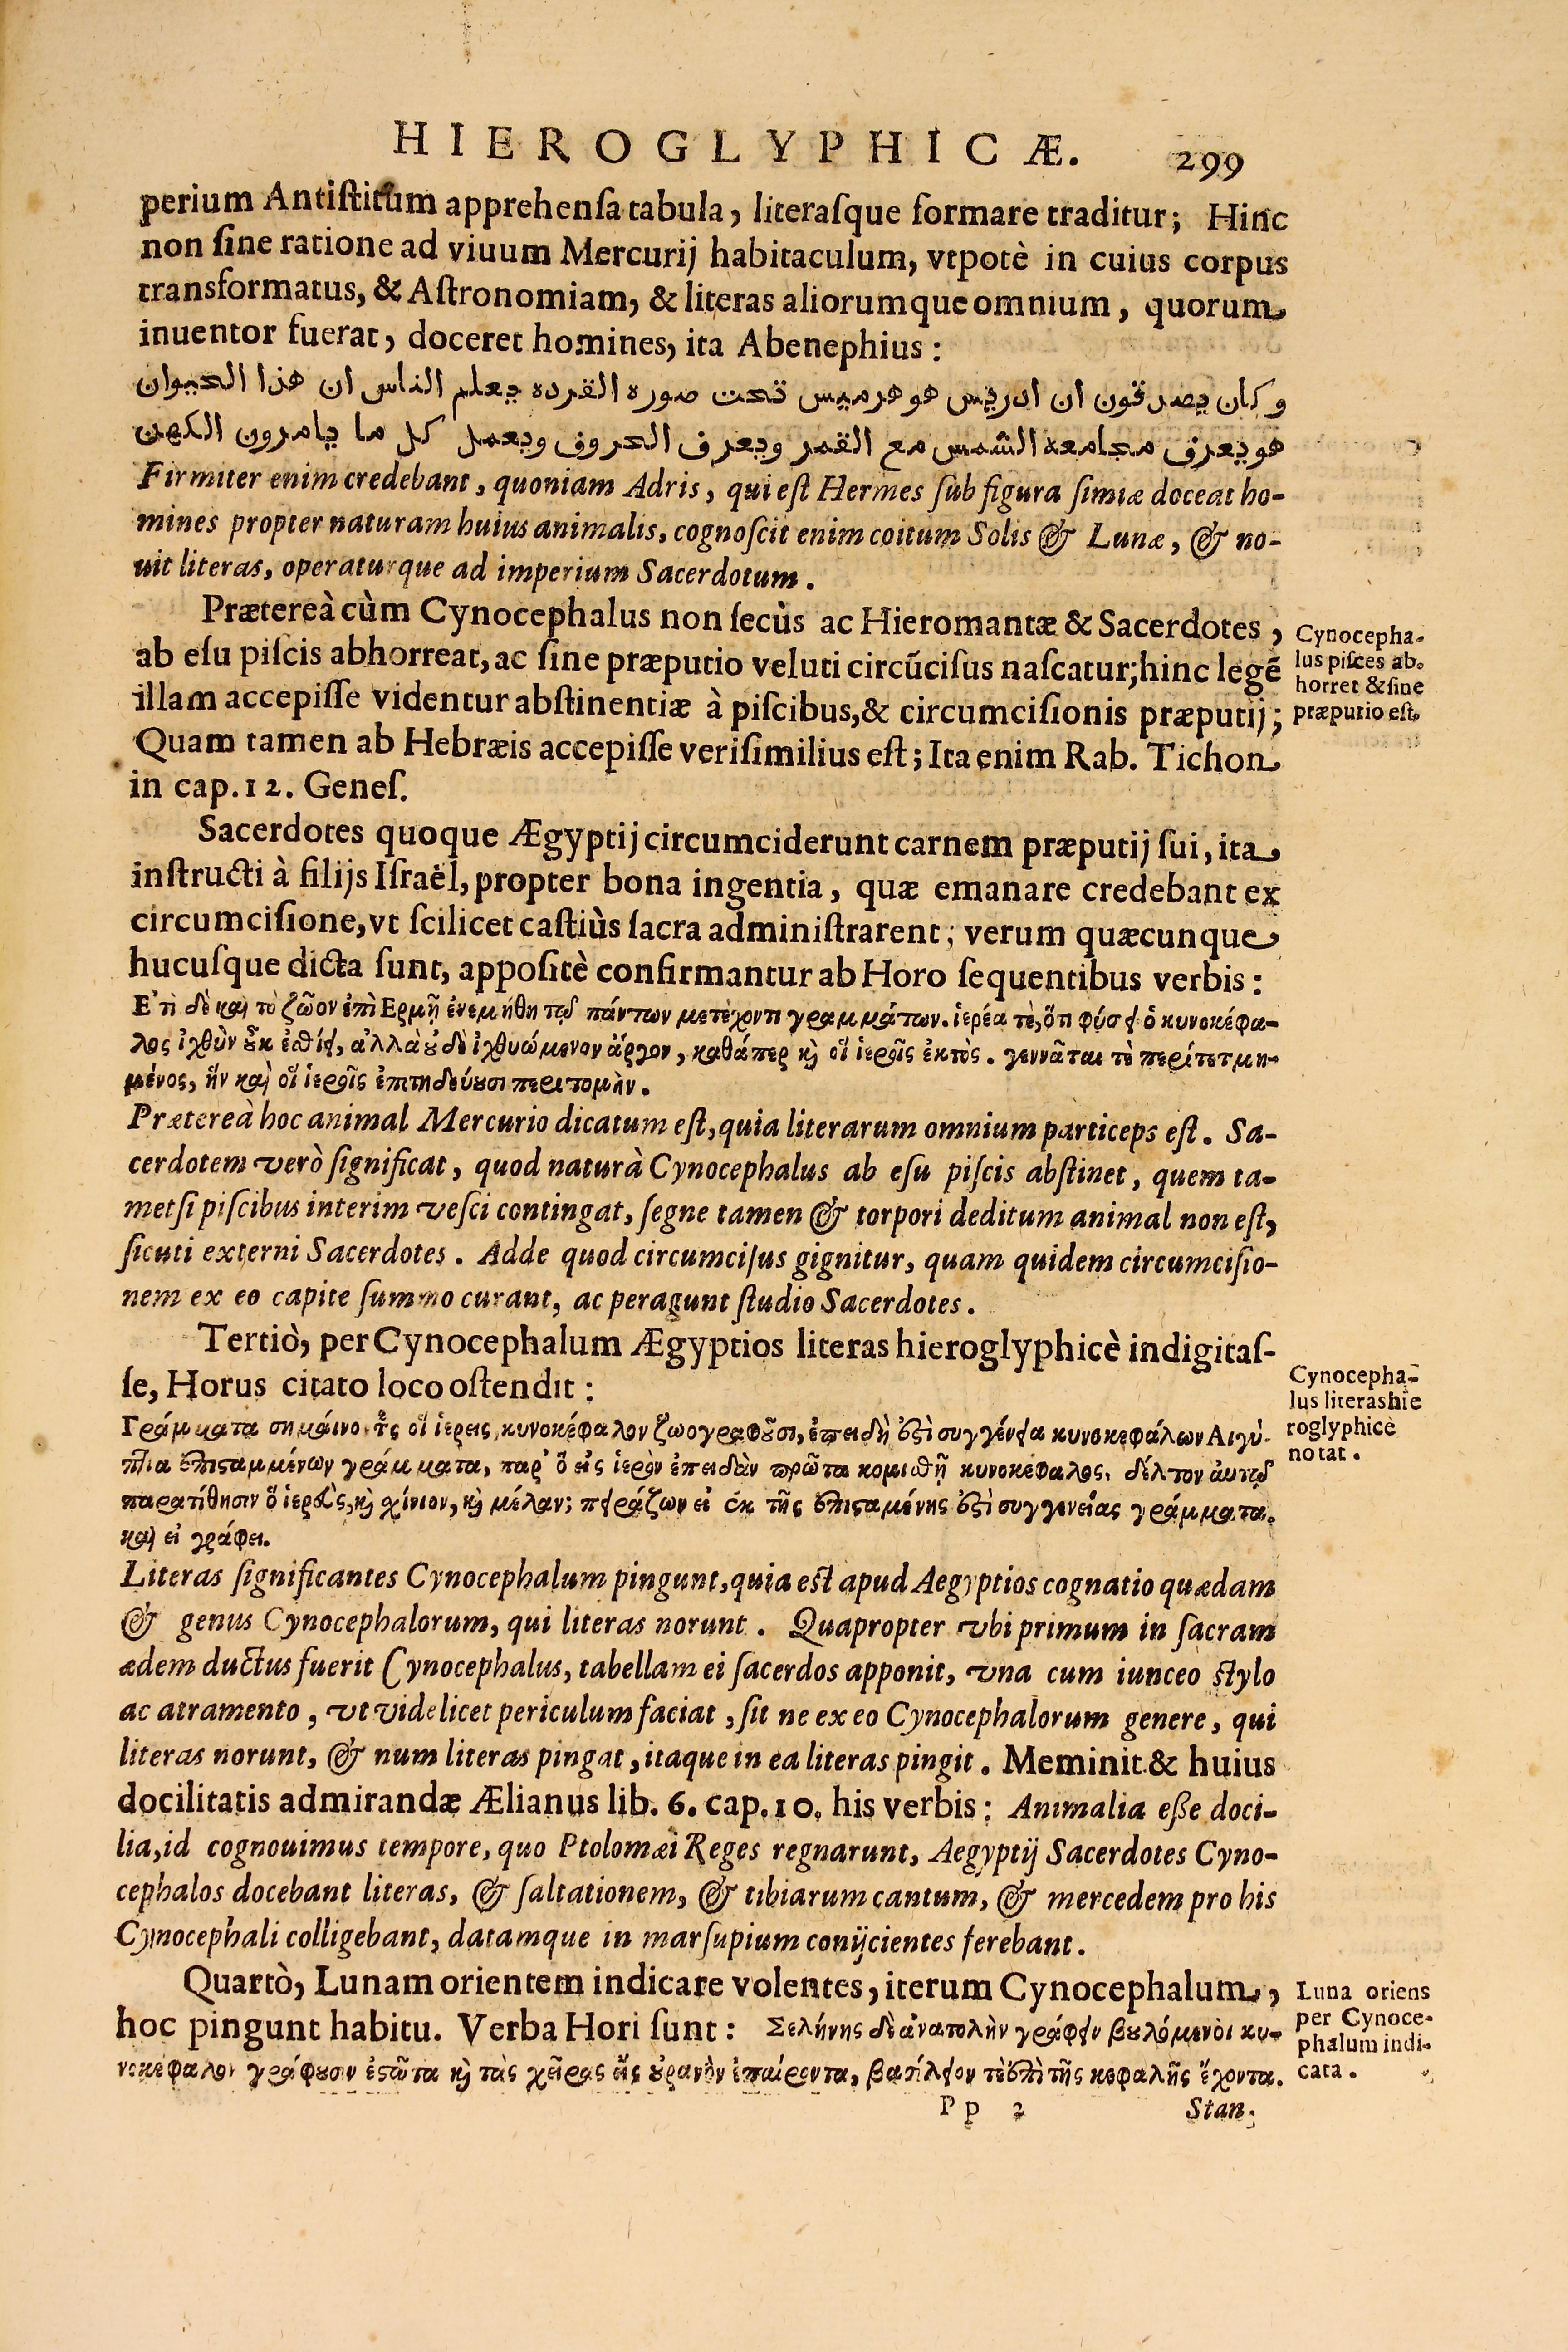 HIEROGLYPHICÆ. 299
perium Antiſtitum apprehenſa tabula, literaſque formare traditur; Hinc
non ſine ratione ad viuum Mercurij habitaculum, vtpotè in cuius corpus
transformatus, & Aſtronomiam, & literas aliorumque omnium, quorum
inuentor fuerat, doceret homines, ita Abenephius:
وكان يصدقون ان ادريس هو هرميس تحت صوره القرده يعلم الناس ان هذا الحيوان
هو يعرف مجامعة الشمس مع القمر ويعرف الحروف ويعمل كل ما يامرون الكهن
Firmiter enim credebant, quoniam Adris, qui eſt Hermes ſub figura ſimiæ doceat ho-
mines propter naturam huius animalis, cognoſcit enim coitum Solis & Lunæ, & no-
uit literas, operaturque ad imperium Sacerdotum.
Prætereà cùm Cynocephalus non ſecùs ac Hieromantæ & Sacerdotes,
ab eſu piſcis abhorreat, ac ſine præputio veluti circũciſus naſcatur; hinc legẽ
illam accepiſſe videntur abſtinentiæ à piſcibus, & circumciſionis præputij;
Quam tamen ab Hebræis accepiſſe veriſimilius eſt; Ita enim Rab. Tichon
in cap. 12. Geneſ.
Cynocepha-
lus piſces ab-
horret & ſine
præputio eſt.
Sacerdotes quoque Ægyptij circumciderunt carnem præputij ſui, ita
inſtructi à filijs Iſraël, propter bona ingentia, quæ emanare credebant ex
circumciſione, vt ſcilicet caſtiùs ſacra adminiſtrarent; verum quæcunque
hucuſque dicta ſunt, appoſitè confirmantur ab Horo ſequentibus verbis:
Ε'τι δὲ καὶ τὸ ζῶον ἐπὶ Ερμῇ ἐνεμήθη τῷ πάντων μετέχοντι γραμμάτων. ἱερέα τὲ, ὅτι φύσει ὁ κυνοκέφα-
λος ἰχθὺν οὐκ ἐσθίει, ἀλλὰ οὐδὲ ἰχθυώμενον ἄργον, καθάπερ καὶ οἵ ἱεροῖς ἐκτὸς. γεννᾶται τὲ περιτετμη-
μένος, ἥν καὶ οἵ ἱεροῖς ἐπιτηδεύουσι περιτομὴν.
Prætereà hoc animal Mercurio dicatum eſt, quia literarum omnium particeps eſt. Sa-
cerdotem verò ſignificat, quod naturà Cynocephalus ab eſu piſcis abſtinet, quem ta-
metſi piſcibus interim veſci contingat, ſegne tamen & torpori deditum animal non eſt,
ſicuti externi Sacerdotes. Adde quod circumciſus gignitur, quam quidem circumciſio-
nem ex eo capite ſummo curant, ac peragunt ſtudio Sacerdotes.
Tertiò, per Cynocephalum Ægyptios literas hieroglyphicè indigitaſ-
ſe, Horus citato loco oſtendit:
Cynocepha-
lus literas hie
roglyphicè
notat.
Γράμματα σημαίνοντες οἵ ἱερεις, κυνοκέφαλον ζωογραφοῦσι, ἐπειδὴ ἐστὶ συγγένεια κυνοκεφάλων Αιγύ-
πτια ἐπισταμμένων γράμματα, παρ' ὅ εἰς ἱερὸν ἐπειδὰν πρῶτα κομισθῇ κυνοκέφαλος, δέλτον ἀυτῷ
παρατίθησιν ὅ ἱερεὺς, καὶ χίνιον, καὶ μέλαν; πειράζων εἰ ἐκ τῆς ἐπισταμένης ἐστὶ συγγενείας γράμματα.
καὶ εἰ γράφει.
Literas ſignificantes Cynocephalum pingunt, quia eſt apud Aegyptios cognatio quædam
& genus Cynocephalorum, qui literas norunt. Quapropter vbi primum in ſacram
ædem ductus fuerit Cynocephalus, tabellam ei ſacerdos apponit, vna cum iunceo ſtylo
ac atramento, vt videlicet periculum faciat, ſit ne ex eo Cynocephalorum genere, qui
literas norunt, & num literas pingat, itaque in ea literas pingit. Meminit & huius
docilitatis admirandæ Ælianus lib. 6. cap. 10. his verbis: Animalia eſſe doci-
lia, id cognouimus tempore, quo Ptolomæi Reges regnarunt, Aegyptij Sacerdotes Cyno-
cephalos docebant literas, & ſaltationem, & tibiarum cantum, & mercedem pro his
Cynocephali colligebant, datamque in marſupium conijcientes ferebant.
Quartò, Lunam orientem indicare volentes, iterum Cynocephalum,
hoc pingunt habitu. Verba Hori ſunt: Σελήνης δὲ ἀνατολὴν γράφειν βουλόμενὸι κυ-
νοκέφαλον γράφουσιν ἑστῶτα καὶ τὰς χεῖρας εἴς οὐρανὸν ἐπαίροντα, βασίλειον τὲ ἐπὶ τῆς κεφαλῆς ἔχοντα.
Luna oriens
per Cynoce-
phalum indi-
cata.
Pp 2 Stan-